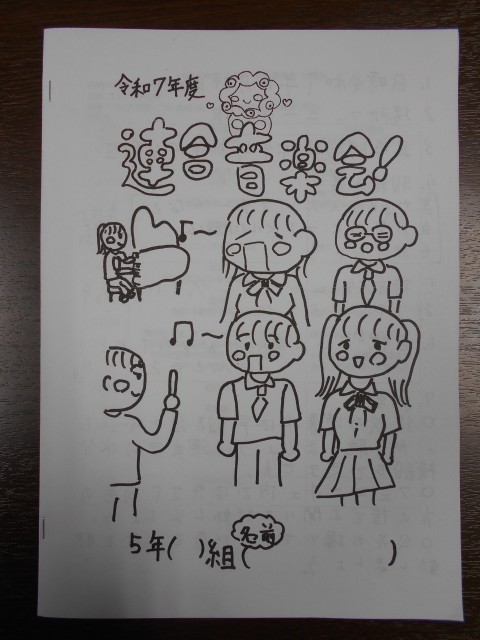 令和7年度
連合音楽会!
5年( )組(名前 )